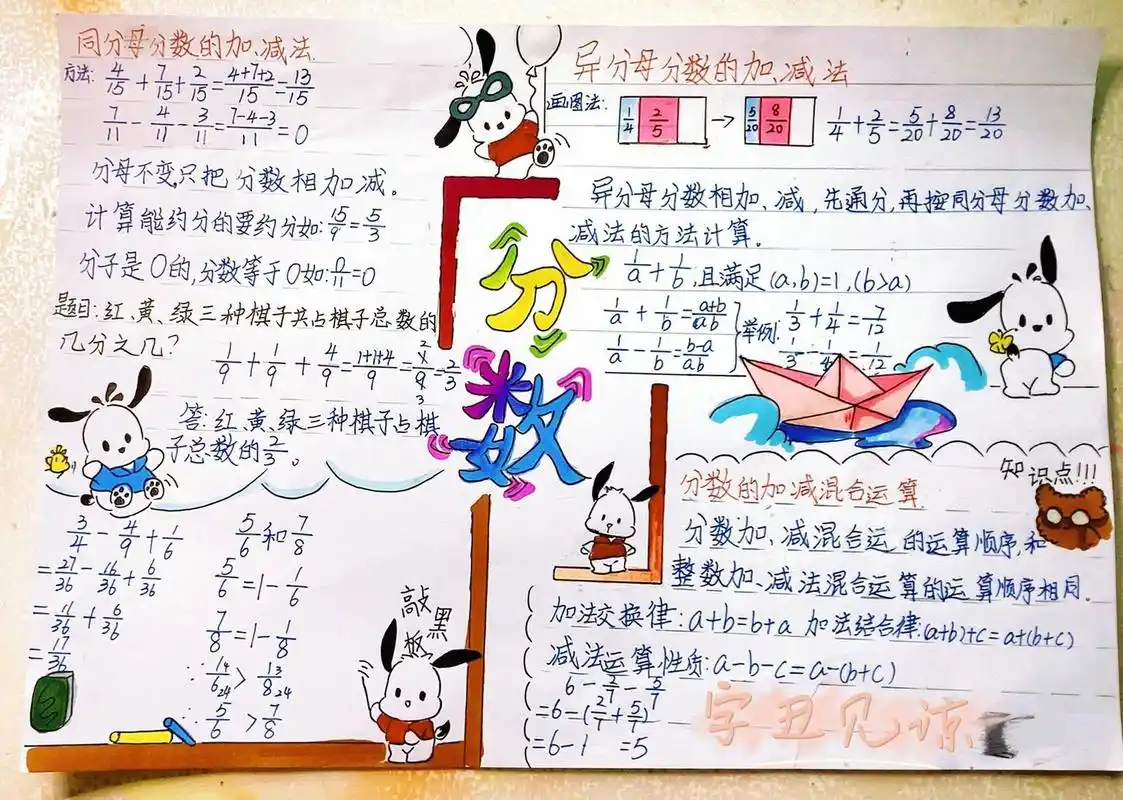 同分母分数的加、减法
方法: 4/15 + 7/15 + 2/15 = (4+7+2)/15 = 13/15
7/11 - 4/11 - 3/11 = (7-4-3)/11 = 0
分母不变,只把分数相加减。
计算能约分的要约分如: 15/9 = 5/3
分子是0的,分数等于0如: 0/11 = 0
题目: 红、黄、绿三种棋子共占棋子总数的
几分之几?
1/9 + 1/9 + 4/9 = (1+1+4)/9 = 2/3
答: 红、黄、绿三种棋子占棋
子总数的2/3。
分数
异分母分数的加、减法
画图法: 1/4 2/5 → 5/20 8/20 1/4 + 2/5 = 5/20 + 8/20 = 13/20
异分母分数相加、减,先通分,再按同分母分数加、
减法的方法计算。
1/a + 1/b ,且满足(a,b)=1,(b>a)
1/a + 1/b = (a+b)/ab
1/a - 1/b = (b-a)/ab
举例: 1/3 + 1/4 = 7/12
1/3 - 1/4 = 1/12
3/4 - 4/9 + 1/6
= 27/36 - 16/36 + 6/36
= 11/36 + 6/36
= 17/36
5/6 和 7/8
5/6 = 1 - 1/6
7/8 = 1 - 1/8
5/6 > 7/8
敲黑
板
知识点!!!
分数的加减混合运算
分数加、减混合运 的运算顺序,和
整数加、减法混合运算的运算顺序相同。
加法交换律: a+b=b+a 加法结合律: (a+b)+c=a+(b+c)
减法运算性质: a-b-c=a-(b+c)
6 - 2/7 - 5/7
=6-(2/7+5/7)
=6-1 =5
字丑见谅